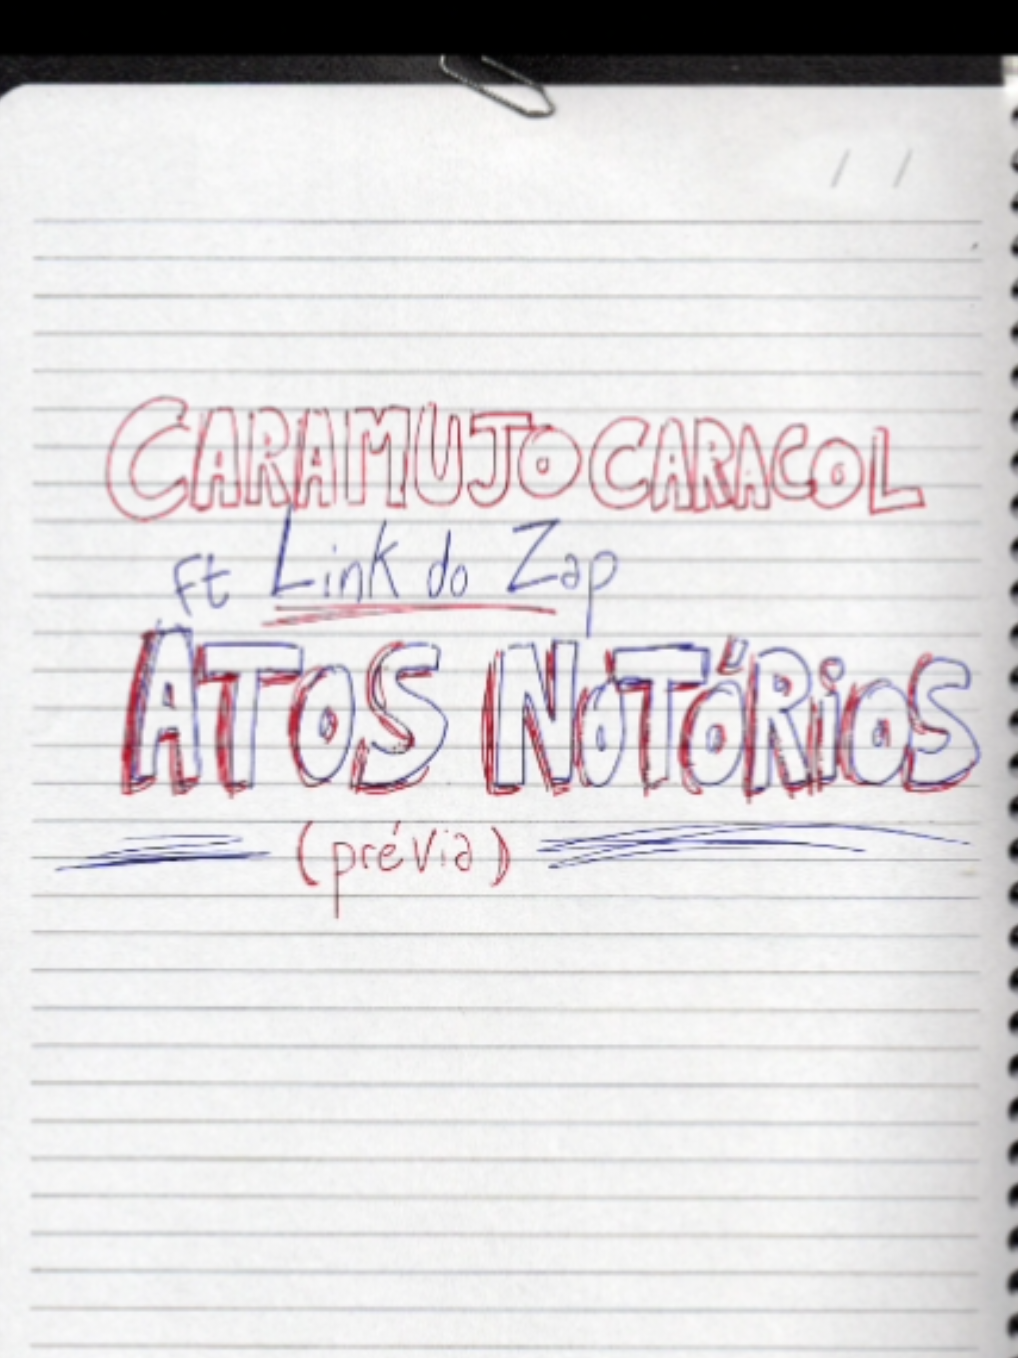 / /
CARAMUJO CARACOL
ft Link do Zap
ATOS NOTÓRiOS
(prévia)